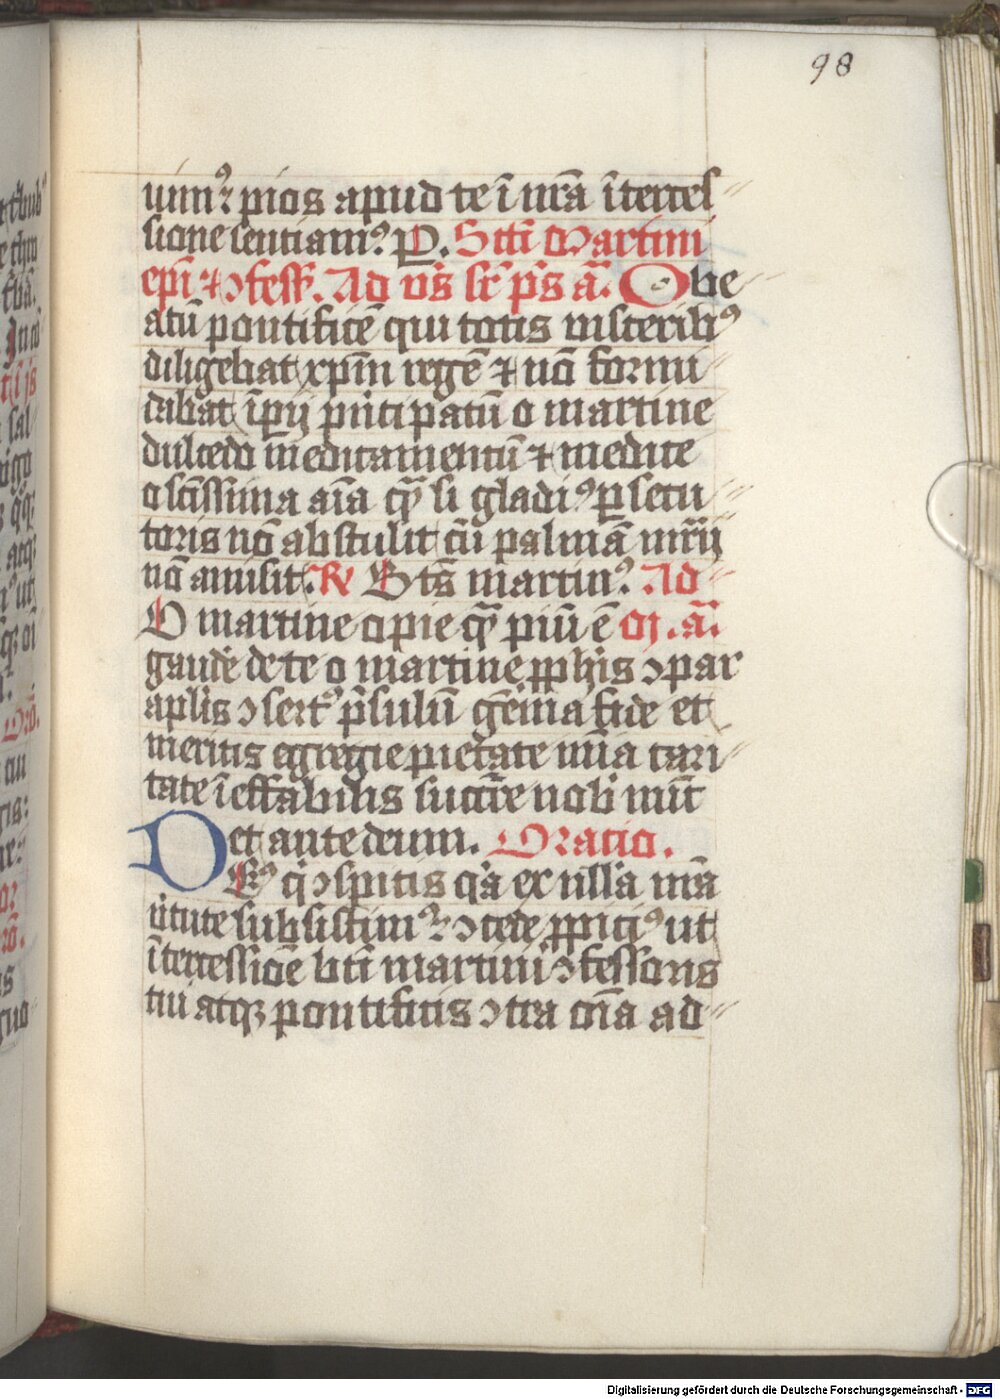 98
uimꝰ pios apud te ī nr̄a īterces
sione sentiamꝰ P. Scti Martini
ep̄i ⁊ ↄfess. Ad vs̄ sc̄ ps̄ a. O be
atū pontificē qui totis visceribꝰ
diligebat xp̄m regē ⁊ nō formi
dabat īpij pn̄cipatū o martine
dulcedo medicamentū ⁊ medice
o sc̄issima aīa qͣ si gladiꝰ ꝑsecu
toris nō abstulit cū palmā mr̄ij
nō amisit R Bts̄ martinꝰ Ad
O martine o pie qͣ piū ē m. a.
gaudē de te o martine ꝓphīs ↄpar
apl̄is ↄsertꝰ p̄sulū gēma fide et
meritis egregie pietate mīa cari
tate īeffabilis succr̄e nob̄ nūc
et ante deum. Oratio.
Dsꝰ qͥ ↄspicis qͥa ex nll̄a nr̄a
ūtute subsistimꝰ ↄcede ꝓpiciꝰ ut
īterc̄essiōe bt̄i martini ↄfessoris
tui atqꝫ pontificis ↄtra oīa ad
Digitalisierung gefördert durch die Deutsche Forschungsgemeinschaft - DFG